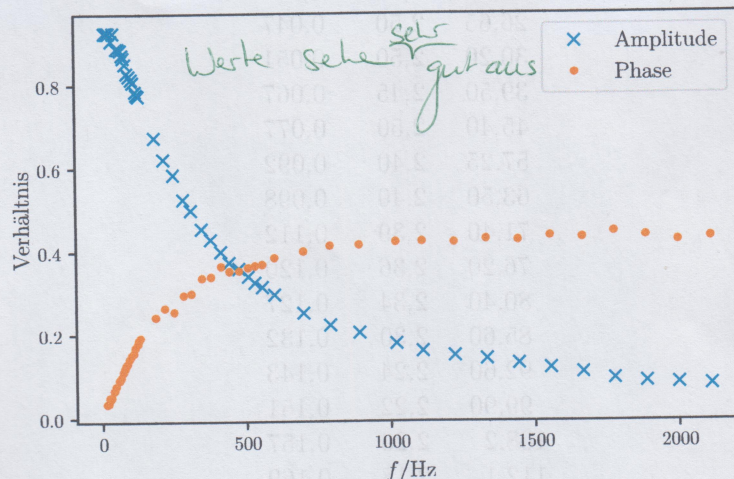 sehr
Werte sehen gut aus
Amplitude
Phase
Verhältnis
0.8
0.6
0.4
0.2
0.0
0 500 1000 1500 2000
f/Hz